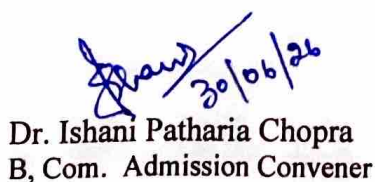 30/06/26
Dr. Ishani Patharia Chopra
B, Com. Admission Convener